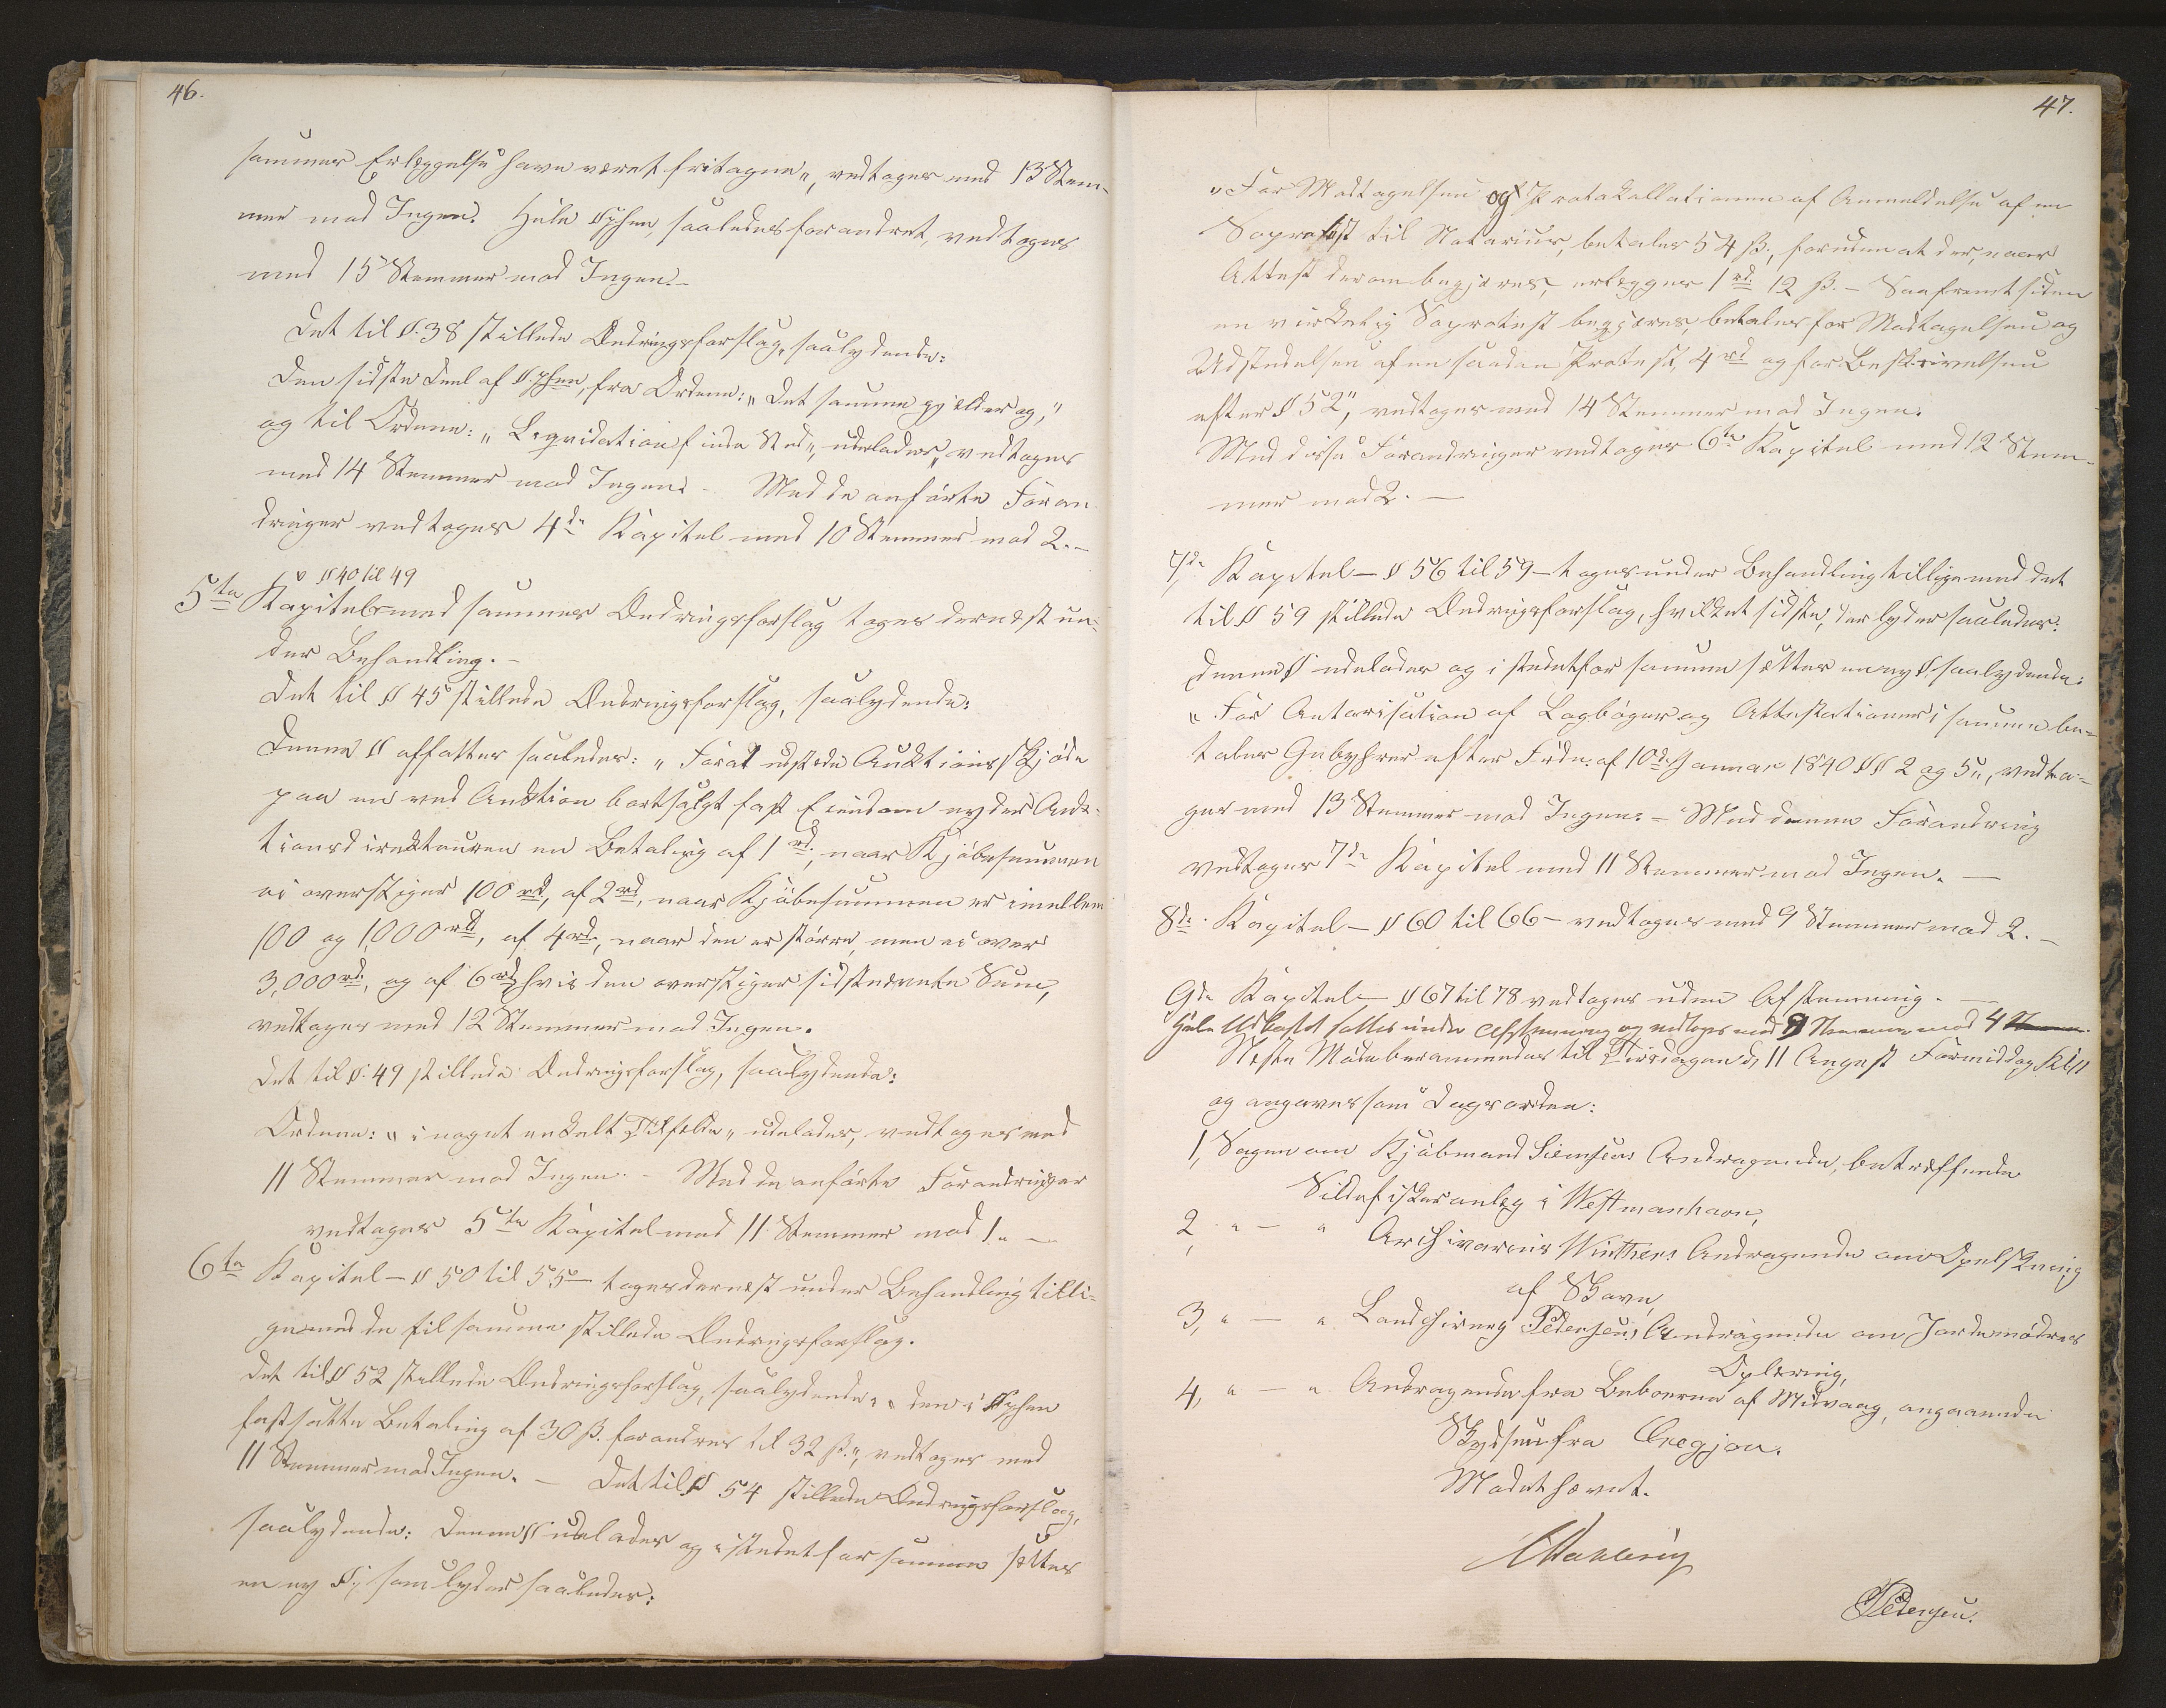 46.
sammes Erlæggelse have været fritagne", vedtoges med 13 Stem-
mer mod Ingen. Hele §phen, saaledes forandret, vedtoges
med 15 Stemmer mod Ingen. -
Det til §. 38 stillede Ændringsforslag, saalydende:
Den sidste Deel af §.phen, fra Ordene: "Det samme gjælder og,"
og til Ordene: "Liqvidation finde Sted", udelades" vedtoges
med 14 Stemmer mod Ingen. - Med de anførte Foran
dringer vedtoges 4de Kapitel med 10 Stemmer mod 2. -
v §40 til 49
5te Kapitel med sammes Ændringsforslag toges dernæst un-
der Behandling. -
Det til § 45 stillede Ændringsforslag, saalydende:
Denne § affattes saaledes: "For at udstede Auktionsskjøde
paa en ved Auktion bortsolgt fast Eiendom nyder Auk-
tionsdirekteuren en Betaling af 1 rd., naar Kjøbesummen
ei overstiger 100 rd, af 2 rd, naar Kjøbesummen er imellem
100 og 1,000 rd, af 4 rd., naar den er større, men ei over
3,000 rd., og af 6 rd, hvis den overstiger sidstnævnte Sum,
vedtoges med 12 Stemmer mod Ingen.
Det til §. 49 stillede Ændringsforslag, saalydende:
Ordene: "i noget enkelt Tilfælde" udelades, vedtoges med
11 Stemmer mod Ingen. - Med de anførte Forandringer
vedtoges 5te Kapitel med 11 Stemmer mod 1. -
6te Kapitel - § 50 til 55 - toges dernæst under Behandling tilli-
gemed de til samme stillede Ændringsforslag.
Det til § 52 stillede Ændringsforslag, saalydende: "den i §phen
fastsatte Betaling af 30 ß. forandres til 32 ß.", vedtoges med
11 Stemmer mod Ingen. - Det til § 54 stillede Ændringsforslag,
saalydende: Denne § udelades og istedetfor samme sættes
en ny §, som lyder saaledes:
47.
"For Modtagelsen og Protokollationen af Anmeldelse af en
Søprotest til Notarius, betales 54 ß., foruden at der, naar
Attest derom begjæres, erlægges 1 rd. 12 ß. - Saafremt siden
en virkelig Søprotest begjæres, betales for Modtagelsen og
Udstedelsen af en saadan Protest, 4 rd og for Beskrivelsen
efter § 52", vedtoges med 14 Stemmer mod Ingen.
Med disse Forandringer vedtoges 6te Kapitel med 12 Stem-
mer mod 2. -
7de Kapitel - § 56 til 59 - toges under Behandling tilligemed det
til § 59 stillede Ændringsforslag, hvilket sidste, der lyder saaledes:
Denne § udelades og istedetfor samme sættes en ny §, saalydende:
"For Autorisation af Lagbøger og Attestationer i samme be-
tales Gebyhrer efter Frdn. af 10de Januar 1840 §§ 2 og 5", vedto-
ges med 13 Stemmer mod Ingen. - Med denne Forandring
vedtoges 7de Kapitel med 11 Stemmer mod Ingen. -
8de. Kapitel - § 60 til 66 - vedtoges med 9 Stemmer mod 2. -
9de Kapitel - § 67 til 78 vedtoges uden Afstemning. -
Hele Udkastet sattes under Afstemning og vedtoges med 9 Stemmer mod 4
Næste Møde berammedes til Tirsdagen d, 11 August Formiddag Kl 11
og angaves som Dagsorden:
1, Sagen om Kjøbmand Siemsens Andragende, betræffende
Sildefiskeranlæg i Westmanhavn,
2, " - " Archivarius Winthers Andragende om Opelskning
af Skove,
3, " - " Landchirurg Petersens Andragende om Jordemødres
Oplæring,
4, " - " Andragende fra Beboerne af Midvaag, angaaende
Skydsen fra Øregjov.
Mødet hævet.
Dahlerup
Petersen.